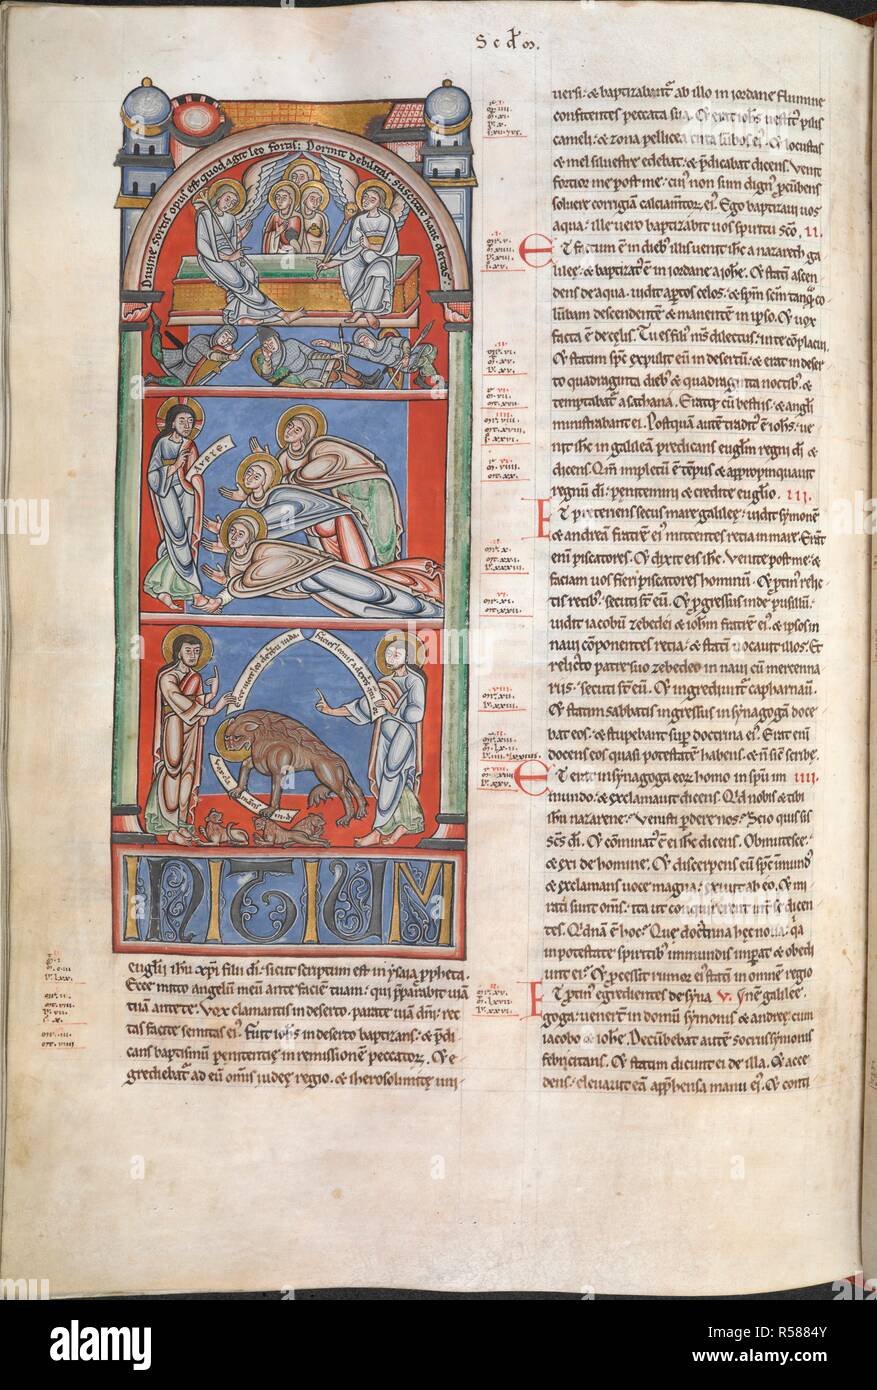 Scdm.
Divine fortis opus est quod agit leo fortis: Dormit debilitas, suscitat hanc deitas:
Avete.
INITIUM
euglii ihu xpi filii di. sicut scriptum est in ysaia ppheta.
Ecce mitto angelum meu ante facie tuam. qui pparabit uia
tua ante te. Vox clamantis in deserto. parate uia dni. rec
tas facite semitas ei. Fuit iohs in deserto baptizans. & pdi
cans baptismu penitentie in remissione peccator. Et e
grediebat ad eu omis iudee regio. & iherosolimite uni
uersi. & baptizabant ab illo in iordane flumine
confitentes peccata sua. Et erat iohs uestit pilis
cameli. & zona pellicea circa lubos ei. Et locustas
& mel siluestre edebat. & pdicabat dicens. Venit
fortior me post me. cui non sum dign pcubens
soluere corrigia calciamtor ei. Ego baptizaui uos
aqua. ille uero baptizabit uos spiritu sco. II.
Et factum e in dieb illis uenit ihc a nazareth ga
lilee. & baptizat e in iordane a iohe. Et stati ascen
dens de aqua. uidit aptos celos. & spm scm tanq co
lubam descendente & manente in ipso. Et uox
facta e de celis. Tu es fili ms dilectus. in te coplacui.
Et statim spc expulit eu in desertu. & erat in deser
to quadraginta dieb & quadraginta noctib. &
temptabat a sathana. Eratq cu bestiis. & angli
ministrabant ei. Postquam aute tradit e iohs. ue
nit ihc in galilea predicans euglm regni di &
dicens. Qm impletu e tepus & appropinquauit
regnu di. penitemini & credite euglio. III.
Et pteriens secus mare galilee. uidit symone
& andrea fratre ei mittentes retia in mare. Erat
eni piscatores. Et dixit eis ihc. Venite post me. &
faciam uos fieri piscatores hominu. Et ptin relic
tis retib. secuti st eu. Et pgressus inde pusillu.
uidit iacobu zebedei & iohm fratre ei. & ipsos in
naui coponentes retia. & stati uocauit illos. Et
relicto patre suo zebedeo in naui cu mercenna
riis. secuti st eu. Et ingrediunt capharnau.
Et statim sabbatis ingressus in synagoga doce
bat eos. & stupebant sup doctrina ei. Erat eni
docens eos quasi potestate habens. & n sic scribe.
Et erat in synagoga eor homo in spu im IIII.
mundo. & exclamauit dicens. Qd nobis & tibi
ihu nazarene. Venisti perdere nos. Scio quis sis
scs di. Et cominat e ei ihc dicens. Obmutesce.
& exi de homine. Et discerpens eu spc inmund
& exclamans uoce magna. exiuit ab eo. Et mi
rati sunt oms. ita ut conquirerent int se dicen
tes. Qdna e hoc. Que doctrina hec noua. qa
in potestate spiritib inmundis impat & obedi
unt ei. Et pcessit rumor ei stati in omne regio
Et ptin egredientes de syna V. ne galilee.
goga. uenert in domu symonis & andree cum
iacobo & iohe. Decubebat aute socrus symonis
febricitans. Et statim dicunt ei de illa. Et acce
dens. eleuauit ea apphensa manu ei. Et conti
alamy
Image ID: R5884Y
www.alamy.com